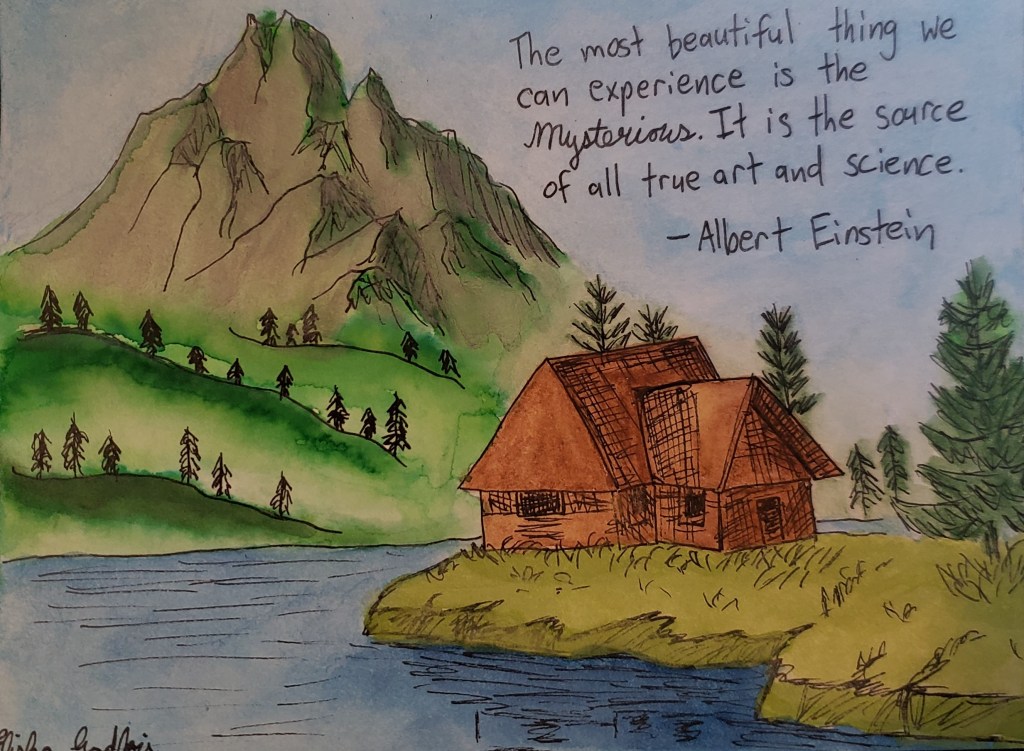 The most beautiful thing we
can experience is the
Mysterious. It is the source
of all true art and science.
- Albert Einstein